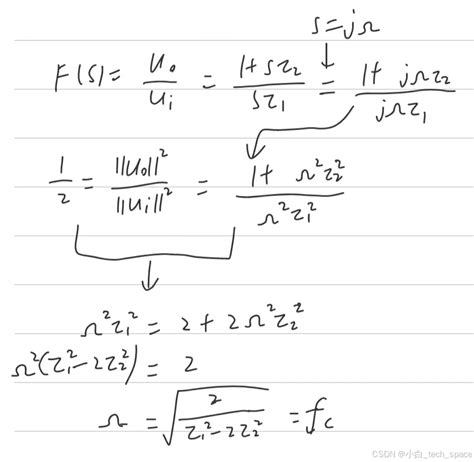 S=jΩ
F(S)= U₀/Uᵢ = 1+Sτ₂/Sτ₁ = 1+jΩτ₂/jΩτ₁
1/2 = ||U₀||²/||Uᵢ||² = 1+Ω²τ₂²/Ω²τ₁²
Ω²τ₁² = 2+2Ω²τ₂²
Ω²(τ₁²-2τ₂²) = 2
Ω = √(2/τ₁²-2τ₂²) = fc
CSDN @小白_tech_space